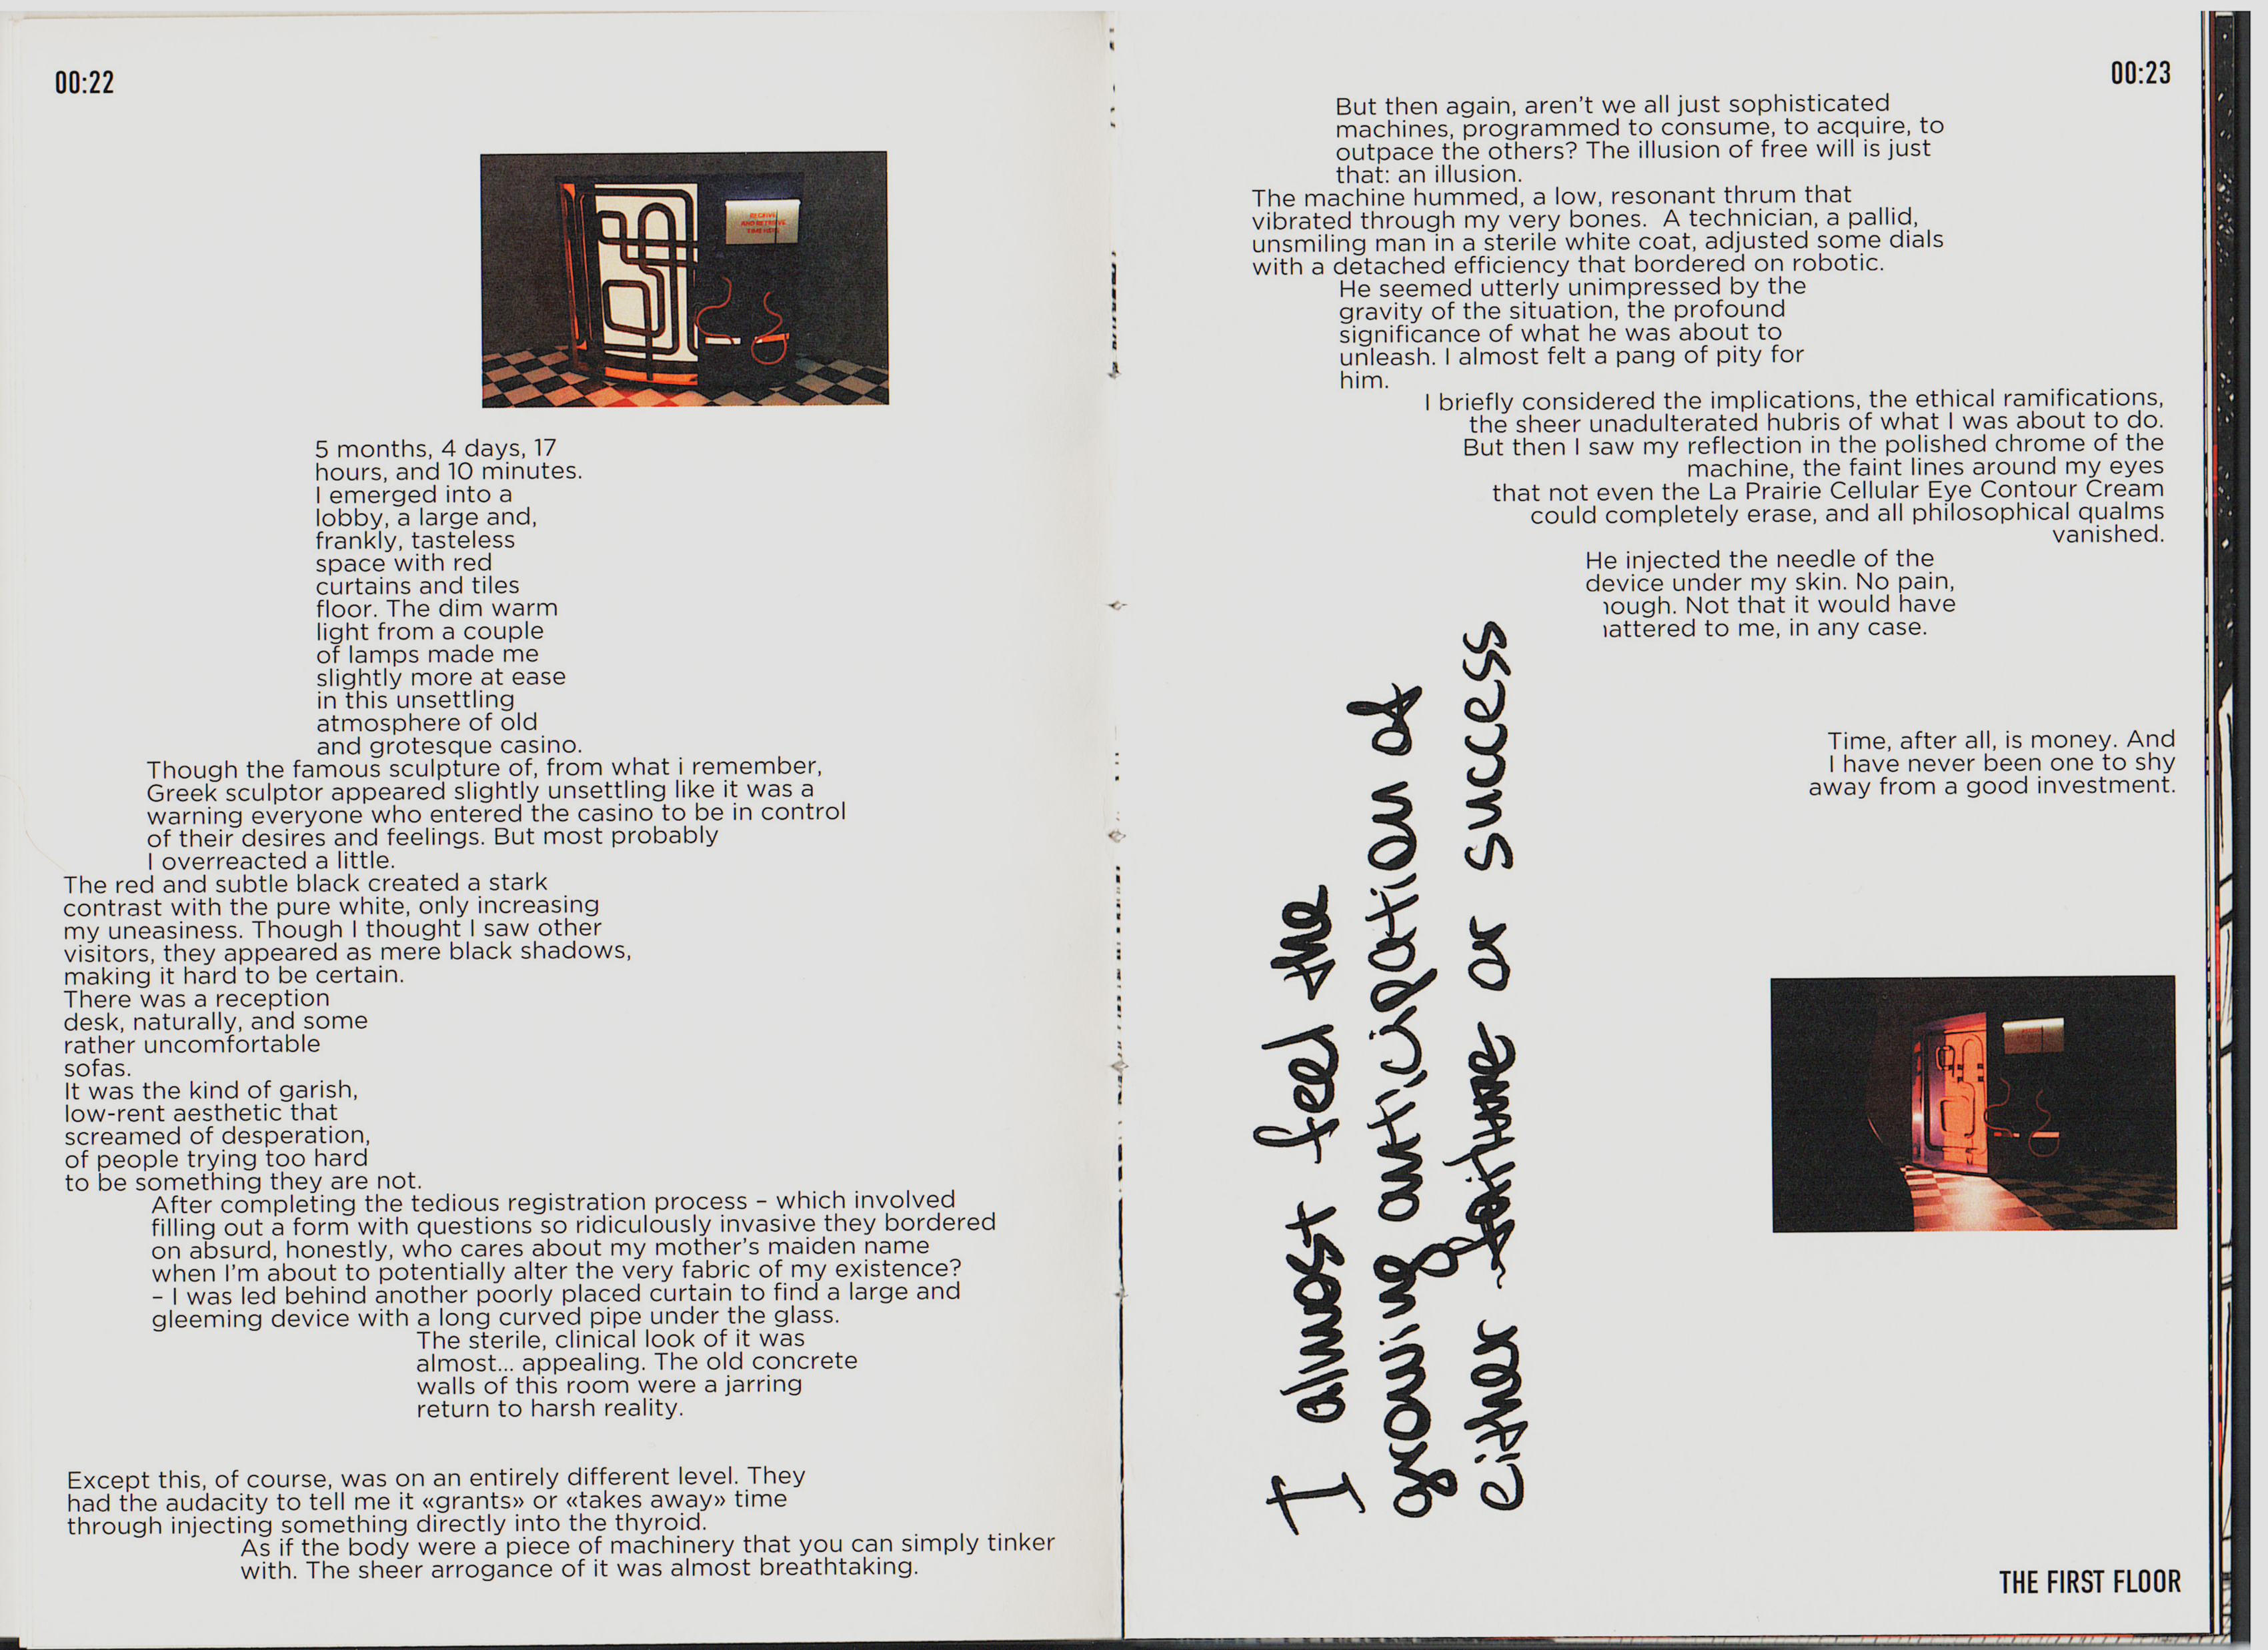 00:22
RECEIVE
AND RETRIEVE
TIME HERE
5 months, 4 days, 17
hours, and 10 minutes.
I emerged into a
lobby, a large and,
frankly, tasteless
space with red
curtains and tiles
floor. The dim warm
light from a couple
of lamps made me
slightly more at ease
in this unsettling
atmosphere of old
and grotesque casino.
Though the famous sculpture of, from what i remember,
Greek sculptor appeared slightly unsettling like it was a
warning everyone who entered the casino to be in control
of their desires and feelings. But most probably
I overreacted a little.
The red and subtle black created a stark
contrast with the pure white, only increasing
my uneasiness. Though I thought I saw other
visitors, they appeared as mere black shadows,
making it hard to be certain.
There was a reception
desk, naturally, and some
rather uncomfortable
sofas.
It was the kind of garish,
low-rent aesthetic that
screamed of desperation,
of people trying too hard
to be something they are not.
After completing the tedious registration process – which involved
filling out a form with questions so ridiculously invasive they bordered
on absurd, honestly, who cares about my mother's maiden name
when I'm about to potentially alter the very fabric of my existence?
– I was led behind another poorly placed curtain to find a large and
gleeming device with a long curved pipe under the glass.
The sterile, clinical look of it was
almost... appealing. The old concrete
walls of this room were a jarring
return to harsh reality.
Except this, of course, was on an entirely different level. They
had the audacity to tell me it «grants» or «takes away» time
through injecting something directly into the thyroid.
As if the body were a piece of machinery that you can simply tinker
with. The sheer arrogance of it was almost breathtaking.
00:23
But then again, aren't we all just sophisticated
machines, programmed to consume, to acquire, to
outpace the others? The illusion of free will is just
that: an illusion.
The machine hummed, a low, resonant thrum that
vibrated through my very bones. A technician, a pallid,
unsmiling man in a sterile white coat, adjusted some dials
with a detached efficiency that bordered on robotic.
He seemed utterly unimpressed by the
gravity of the situation, the profound
significance of what he was about to
unleash. I almost felt a pang of pity for
him.
I briefly considered the implications, the ethical ramifications,
the sheer unadulterated hubris of what I was about to do.
But then I saw my reflection in the polished chrome of the
machine, the faint lines around my eyes
that not even the La Prairie Cellular Eye Contour Cream
could completely erase, and all philosophical qualms
vanished.
He injected the needle of the
device under my skin. No pain,
ough. Not that it would have
attered to me, in any case.
I almost feel the
growing anticipation of
either failure or success
Time, after all, is money. And
I have never been one to shy
away from a good investment.
THE FIRST FLOOR